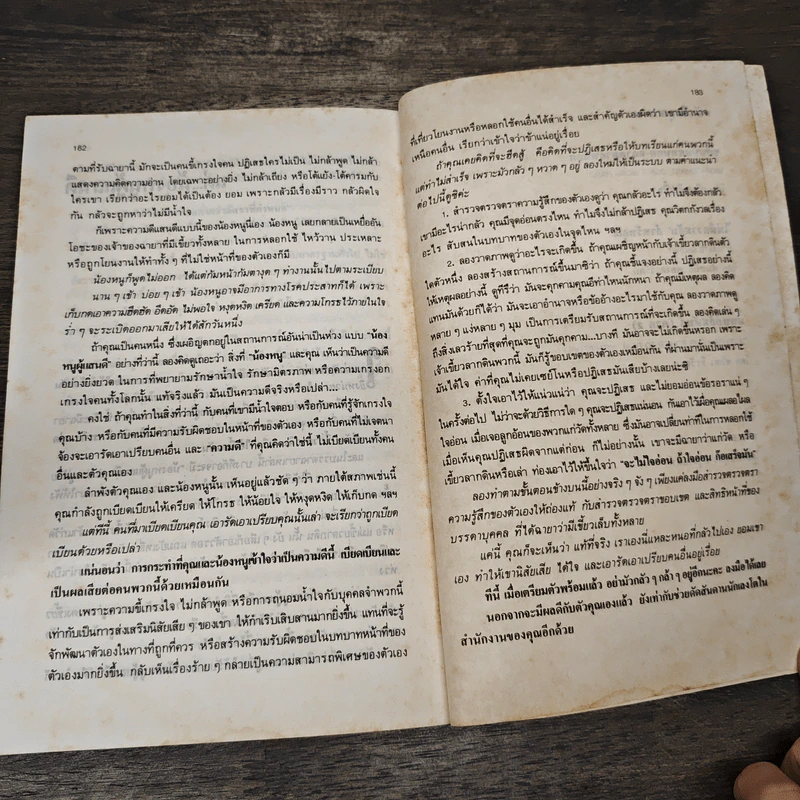 182
ตามที่รับฉายานี้ มักจะเป็นคนขี้เกรงใจคน ปฏิเสธใครไม่เป็น ไม่กล้าพูด ไม่กล้า
แสดงความคิดความอ่าน โดยเฉพาะอย่างยิ่ง ไม่กล้าเถียง หรือโต้แย้ง-โต้คารมกับ
ใครเขา เรียกว่าอะไรยอมได้เป็นต้อง ยอม เพราะกลัวมีเรื่องมีราว กลัวผิดใจ
กัน กลัวจะถูกหาว่าไม่มีน้ำใจ
ก็เพราะความดีแสนดีแบบนี้ของน้องหนูนี่เอง น้องหนู เลยกลายเป็นเหยื่ออัน
โอชะของเจ้าของฉายาที่มีเขี้ยวทั้งหลาย ในการหลอกใช้ ไหว้วาน ประเหลาะ
หรือถูกโยนงานให้ทำทั้ง ๆ ที่ไม่ใช่หน้าที่ของตัวเองก็มี
น้องหนูก็พูดไม่ออก ได้แต่ก้มหน้าก้มตางุด ๆ ทำงานนั้นไปตามระเบียบ
นาน ๆ เข้า บ่อย ๆ เข้า น้องหนูอาจมีอาการทางโรคประสาทก็ได้ เพราะ
เก็บกดเอาความฮึดฮัด อึดอัด ไม่พอใจ หงุดหงิด เครียด และความโกรธไว้ภายในใจ
ร่ำ ๆ จะระเบิดออกมาเสียให้ได้สักวันหนึ่ง
ถ้าคุณเป็นคนหนึ่ง ซึ่งเผอิญตกอยู่ในสถานการณ์อันน่าเป็นห่วง แบบ "น้อง
หนูผู้แสนดี" อย่างที่ว่านี้ ลองคิดดูเถอะว่า สิ่งที่ "น้องหนู" และคุณ เห็นว่าเป็นความดี
อย่างยิ่งยวด ในการที่พยายามรักษาน้ำใจ รักษามิตรภาพ หรือความเกรงอก
เกรงใจคนทั้งโลกนั้น แท้จริงแล้ว มันเป็นความดีจริงหรือเปล่า...
คงใช่ ถ้าคุณทำในสิ่งที่ว่านี้ กับคนที่เขามีน้ำใจตอบ หรือกับคนที่รู้จักเกรงใจ
คุณบ้าง หรือกับคนที่มีความรับผิดชอบในหน้าที่ของตัวเอง หรือกับคนที่ไม่เจตนา
จ้องจะเอารัดเอาเปรียบคนอื่น และ "ความดี" ที่คุณคิดว่าใช่นี้ ไม่เบียดเบียนทั้งคน
อื่นและตัวคุณเอง
ลำพังตัวคุณเอง และน้องหนูนั้น เห็นอยู่แล้วชัด ๆ ว่า ภายใต้สภาพเช่นนี้
คุณกำลังถูกเบียดเบียนให้เครียด ให้โกรธ ให้น้อยใจ ให้หงุดหงิด ให้เก็บกด ฯลฯ
แต่ทีนี้ คนที่มาเบียดเบียนคุณ เอารัดเอาเปรียบคุณนั้นเล่า จะเรียกว่าถูกเบียด
เบียนด้วยหรือเปล่า
แน่นอนว่า การกระทำที่คุณและน้องหนูเข้าใจว่าเป็นความดีนี้ เบียดเบียนและ
เป็นผลเสียต่อคนพวกนี้ด้วยเหมือนกัน
เพราะความขี้เกรงใจ ไม่กล้าพูด หรือการถนอมน้ำใจกับบุคคลจำพวกนี้
เท่ากับเป็นการส่งเสริมนิสัยเสีย ๆ ของเขา ให้กำเริบเสิบสานมากยิ่งขึ้น แทนที่จะรู้
จักพัฒนาตัวเองในทางที่ถูกที่ควร หรือสร้างความรับผิดชอบในบทบาทหน้าที่ของ
ตัวเองมากยิ่งขึ้น กลับเห็นเรื่องร้าย ๆ กลายเป็นความสามารถพิเศษของตัวเอง
183
ที่เที่ยวโยนงานหรือหลอกใช้คนอื่นได้สำเร็จ และสำคัญตัวเองผิดว่า เขามีอำนาจ
เหนือคนอื่น เรียกว่าเข้าใจว่าข้าแน่อยู่เรื่อย
ถ้าคุณเคยคิดที่จะฮึดสู้ คือคิดที่จะปฏิเสธหรือให้บทเรียนแก่คนพวกนี้
แต่ทำไม่สำเร็จ เพราะมัวกลัว ๆ หวาด ๆ อยู่ ลองใหม่ให้เป็นระบบ ตามคำแนะนำ
ต่อไปนี้ดูซิค่ะ
1. สำรวจตรวจตราความรู้สึกของตัวเองดูว่า คุณกลัวอะไร ทำไมจึงต้องกลัว
เขามีอะไรน่ากลัว คุณมีจุดอ่อนตรงไหน ทำไมจึงไม่กล้าปฏิเสธ คุณวิตกกังวลเรื่อง
อะไร สับสนในบทบาทของตัวเองในจุดไหน ฯลฯ
2. ลองวาดภาพดูว่าอะไรจะเกิดขึ้น ถ้าคุณเผชิญหน้ากับเจ้าเขี้ยวลากดินตัว
ใดตัวหนึ่ง ลองสร้างสถานการณ์ขึ้นมาซิว่า ถ้าคุณชี้แจงอย่างนี้ ปฏิเสธอย่างนี้
ให้เหตุผลอย่างนี้ ดูทีรึว่า มันจะคุกคามคุณอีท่าไหนนักหนา ถ้าคุณมีเหตุผล ลองคิด
แทนมันด้วยก็ได้ว่า มันจะเอาอำนาจหรือข้ออ้างอะไรมาใช้กับคุณ ลองวาดภาพดู
หลาย ๆ แง่หลาย ๆ มุม เป็นการเตรียมรับสถานการณ์ที่จะเกิดขึ้น ลองคิดเล่น ๆ
ถึงสิ่งเลวร้ายที่สุดที่คุณจะถูกมันคุกคาม...บางที มันอาจจะไม่เกิดขึ้นหรอก เพราะ
เจ้าเขี้ยวลากดินพวกนี้ มันก็รู้ขอบเขตของตัวเองเหมือนกัน ที่ผ่านมานั้นเป็นเพราะ
มันได้ใจ ค่าที่คุณไม่เคยเซย์โนหรือปฏิเสธมันเสียบ้างเลยน่ะซิ
3. ตั้งใจเอาไว้ให้แน่วแน่ว่า คุณจะปฏิเสธ และไม่ยอมอ่อนข้อรอราแน่ ๆ
ในครั้งต่อไป ไม่ว่าจะด้วยวิธีการใด ๆ คุณจะปฏิเสธแน่นอน กันเอาไว้เผื่อคุณเผลอไผล
ใจอ่อน เมื่อเจอลูกอ้อนของพวกแก่วัดทั้งหลาย ซึ่งมันอาจเปลี่ยนท่าทีในการหลอกใช้
เมื่อเห็นคุณปฏิเสธผิดจากแต่ก่อน ก็ไม่อย่างนั้น เขาจะมีฉายาว่าแก่วัด หรือ
เขี้ยวลากดินหรือเล่า ท่องเอาไว้ให้ขึ้นใจว่า "จะไม่ใจอ่อน ถ้าใจอ่อน ก็เสร็จมัน"
ลองทำตามขั้นตอนข้างบนนี้อย่างจริง ๆ จัง ๆ เพียงแค่ลงมือสำรวจตรวจตรา
ความรู้สึกของตัวเองให้ถ่องแท้ กับสำรวจตราขอบเขต และสิทธิหน้าที่ของ
บรรดาบุคคล ที่ได้ฉายาว่ามีเขี้ยวเล็บทั้งหลาย
แค่นี้ คุณก็จะเห็นว่า แท้ที่จริง เราเองนี่แหละหนอที่กลัวไปเอง ยอมเขา
เอง ทำให้เขานิสัยเสีย ได้ใจ และเอารัดเอาเปรียบคนอื่นอยู่เรื่อย
ทีนี้ เมื่อเตรียมตัวพร้อมแล้ว อย่ามัวกลัว ๆ กล้า ๆ อยู่อีกนะคะ ลงมือได้เลย
นอกจากจะมีผลดีกับตัวคุณเองแล้ว ยังเท่ากับช่วยดัดสันดานนักเลงโตใน
สำนักงานของคุณอีกด้วย